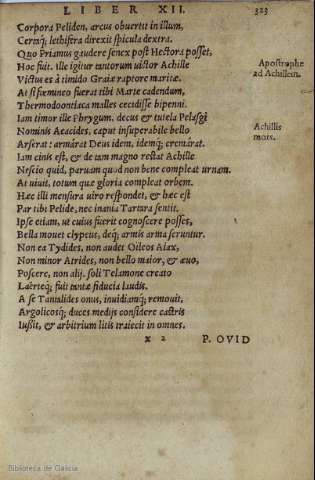 LIBER XII.
323
Corpora Peliden, arcus obuertit in illum,
Certaq́; lethifera direxit spicula dextra.
Quo Priamus gaudere senex post Hectora posset,
Hoc fuit. Ille igitur tantorum uictor Achille
Victus es à timido Graiæ raptore maritæ.
At si fœmineo fuerat tibi Marte cadendum,
Thermodoontiaca malles cecidisse bipenni.
Iam timor ille Phrygum, decus & tutela Pelasgi
Nominis Aeacides, caput insuperabile bello
Arserat: armârat Deus idem, idemq́; cremârat.
Iam cinis est, & de tam magno restat Achille
Nescio quid, paruam quod non bene compleat urnam.
At uiuit, totum quæ gloria compleat orbem.
Hæc illi mensura uiro respondet, & hæc est
Par tibi Pelide, nec inania Tartara sentit.
Ipse etiam, ut cuius fuerit cognoscere posses,
Bella mouet clypeus, deq́; armis arma feruntur.
Non ea Tydides, non audet Oileos Aiax,
Non minor Atrides, non bello maior, & æuo,
Poscere, non alij. soli Telamone creato
Laërteq́; fuit tantæ fiducia laudis.
A se Tantalides onus, inuidiamq́; remouit,
Argolicosq́; duces medijs considere castris
Iussit, & arbitrium litis traiecit in omnes.
Apostrophe
ad Achillem.
Achillis
mors.
x 2
P. OVID
Biblioteca de Galicia